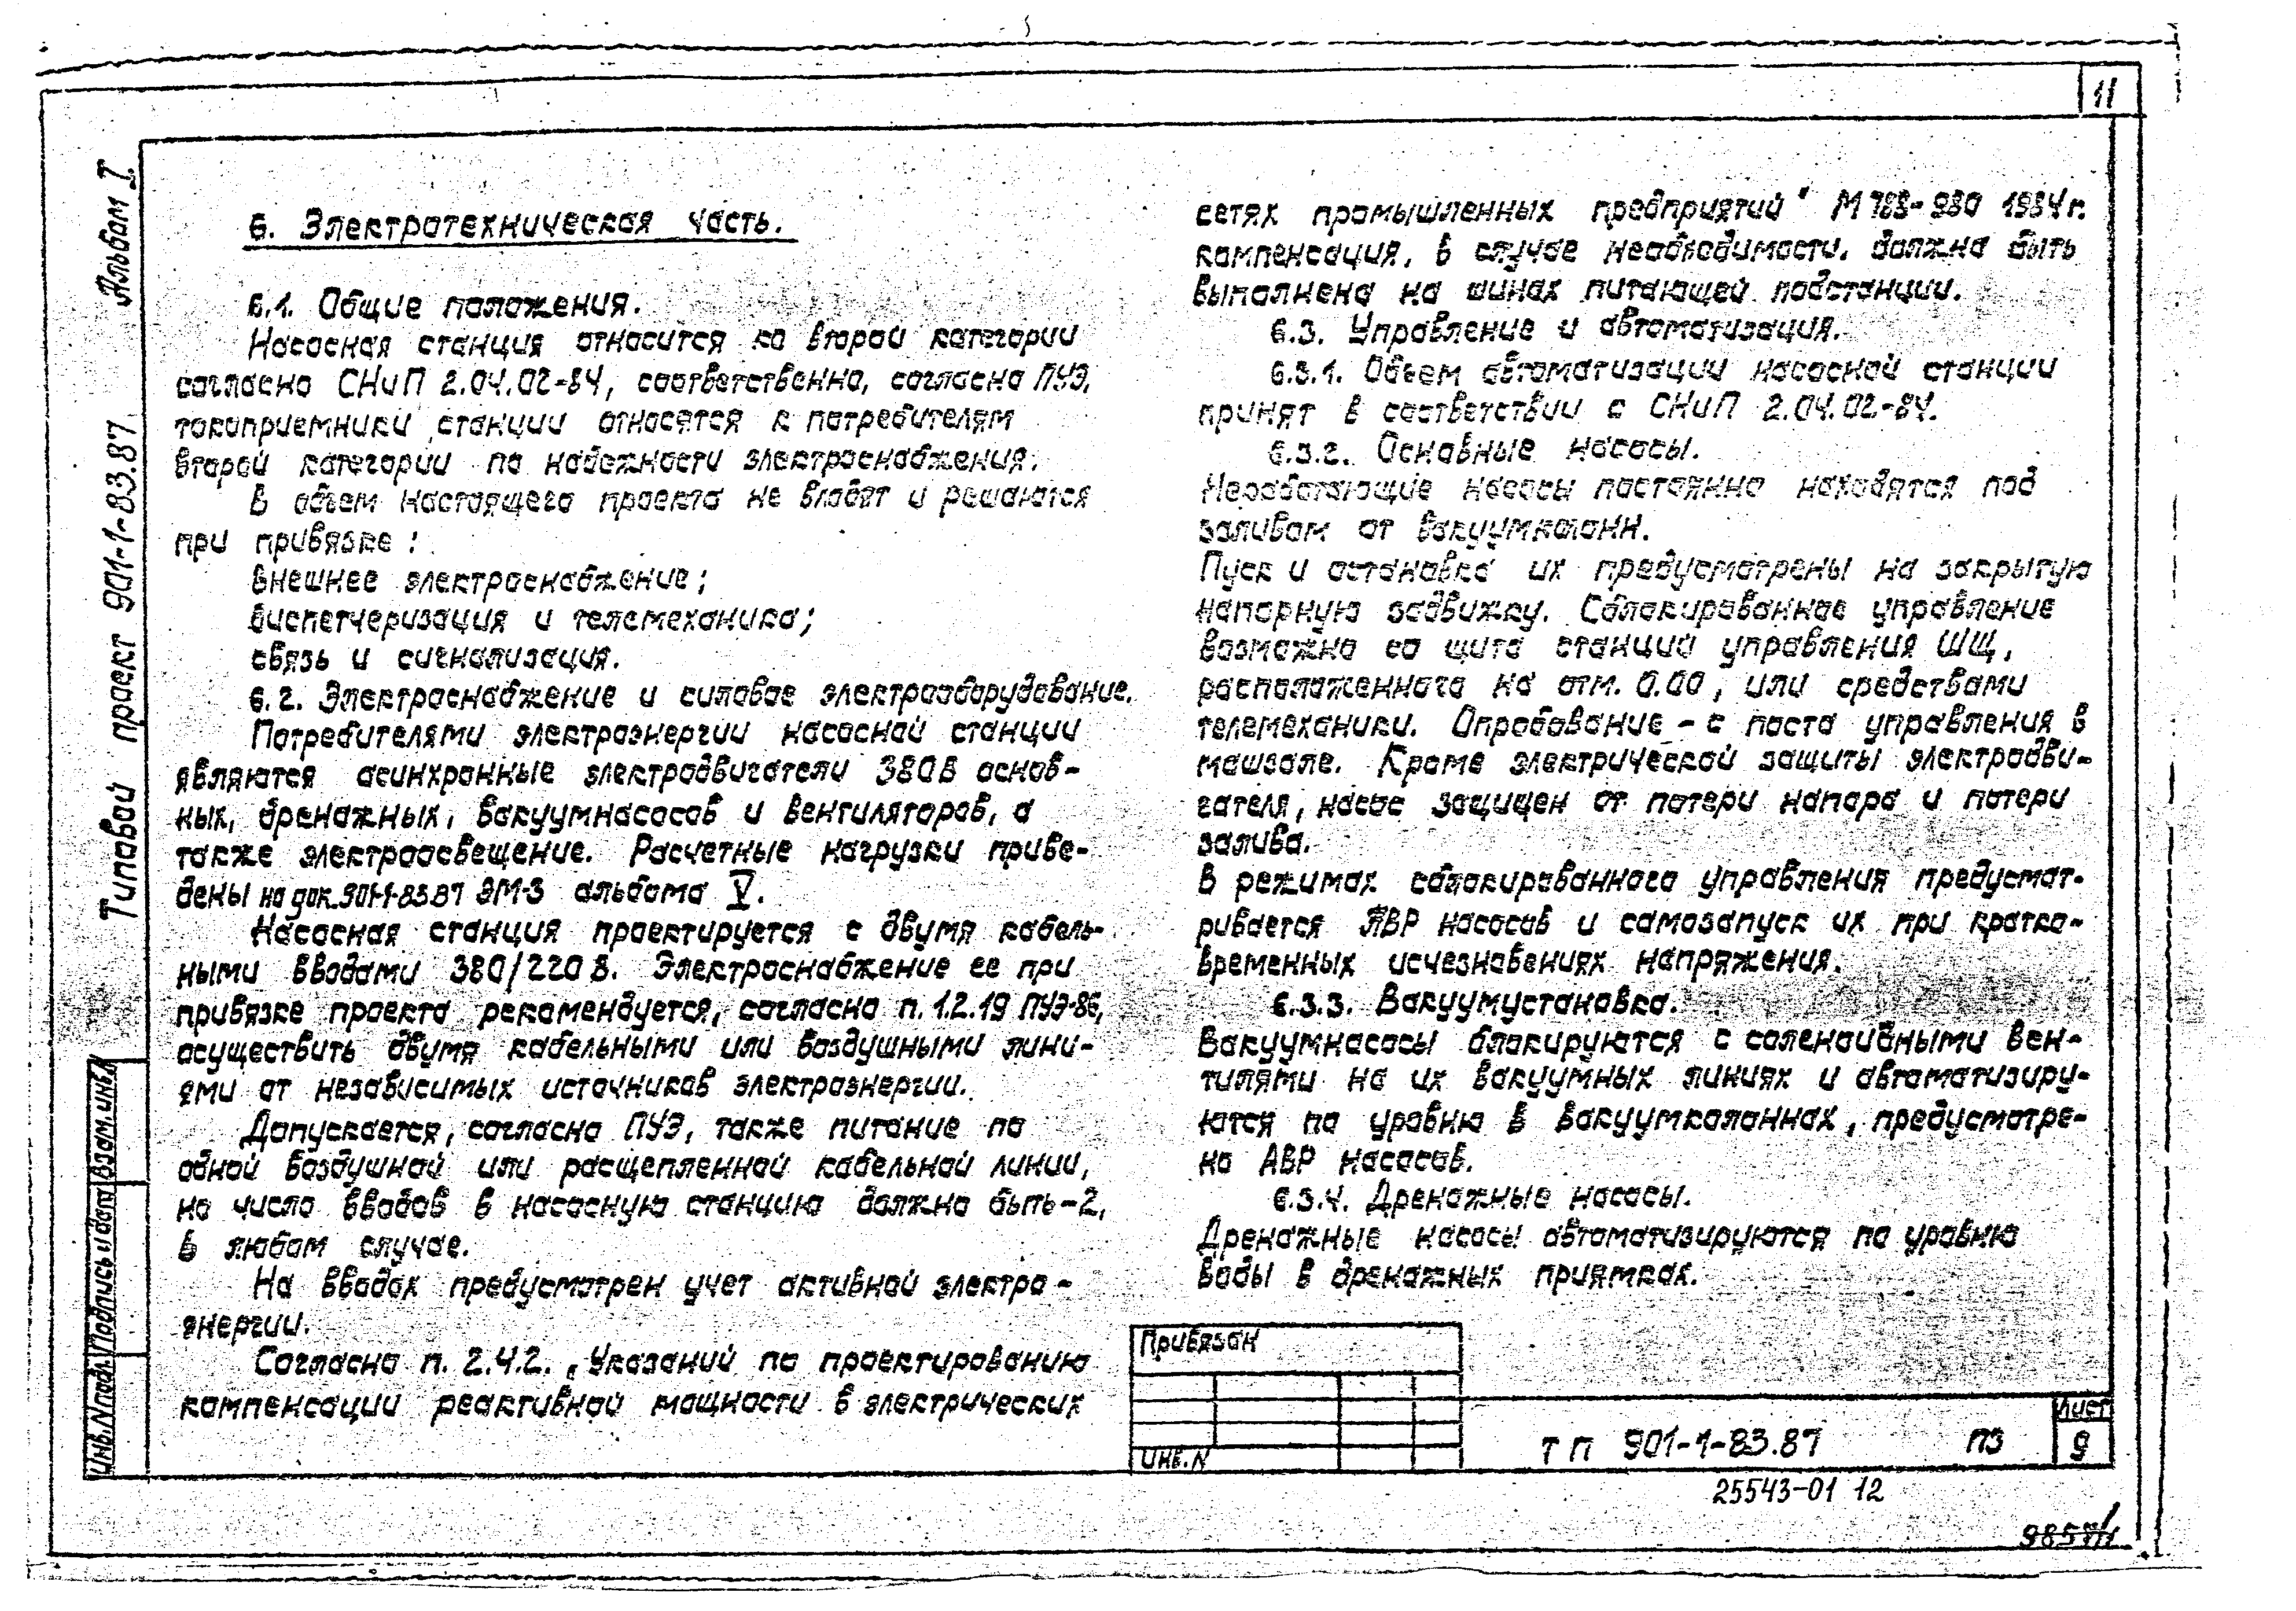 11
Альбом I
Типовой проект 901-1-83.87
6. Электротехническая часть.
6.1. Общие положения.
Насосная станция относится ко второй категории
согласно СНиП 2.04.02-84, соответственно, согласно ПУЭ,
токоприемники станции относятся к потребителям
второй категории по надежности электроснабжения.
В объем настоящего проекта не входят и решаются
при привязке:
внешнее электроснабжение;
диспетчеризация и телемеханика;
связь и сигнализация.
6.2. Электроснабжение и силовое электрооборудование.
Потребителями электроэнергии насосной станции
являются асинхронные электродвигатели 380В основ-
ных, дренажных, вакуумнасосов и вентиляторов, а
также электроосвещение. Расчетные нагрузки приве-
дены на док. 901-1-83.87 ЭМ-3 альбома V.
Насосная станция проектируется с двумя кабель-
ными вводами 380/220 В. Электроснабжение ее при
привязке проекта рекомендуется, согласно п. 1.2.19 ПУЭ-86,
осуществить двумя кабельными или воздушными лини-
ями от независимых источников электроэнергии.
Допускается, согласно ПУЭ, также питание по
одной воздушной или расщепленной кабельной линии,
но число вводов в насосную станцию должно быть-2,
в любом случае.
На вводах предусмотрен учет активной электро-
энергии.
Согласно п. 2.4.2. „Указаний по проектированию
компенсации реактивной мощности в электрических
сетях промышленных предприятий" М788-930 1984г.
компенсация, в случае необходимости, должна быть
выполнена на шинах питающей подстанции.
6.3. Управление и автоматизация.
6.3.1. Объем автоматизации насосной станции
принят в соответствии с СНиП 2.04.02-84.
6.3.2. Основные насосы.
Неработающие насосы постоянно находятся под
заливом от вакуумколонн.
Пуск и остановка их предусмотрены на закрытую
напорную задвижку. Сблокированное управление
возможно со щита станций управления ШЩ,
расположенного на отм. 0.00, или средствами
телемеханики. Опробование - с поста управления в
машзале. Кроме электрической защиты электродви-
гателя, насос защищен от потери напора и потери
залива.
В режимах сблокированного управления предусмат-
ривается АВР насосов и самозапуск их при кратко-
временных исчезновениях напряжения.
6.3.3. Вакуумустановка.
Вакуумнасосы блокируются с соленоидными вен-
тилями на их вакуумных линиях и автоматизиру-
ются по уровню в вакуумколоннах, предусмотре-
но АВР насосов.
6.3.4. Дренажные насосы.
Дренажные насосы автоматизируются по уровню
воды в дренажных приямках.
Взам.инв.
Подпись и дата
Инв.Nподл.
Привязан
Инв.N
ТП 901-1-83.87 ПЗ
Лист
9
25543-01 12
9857/1